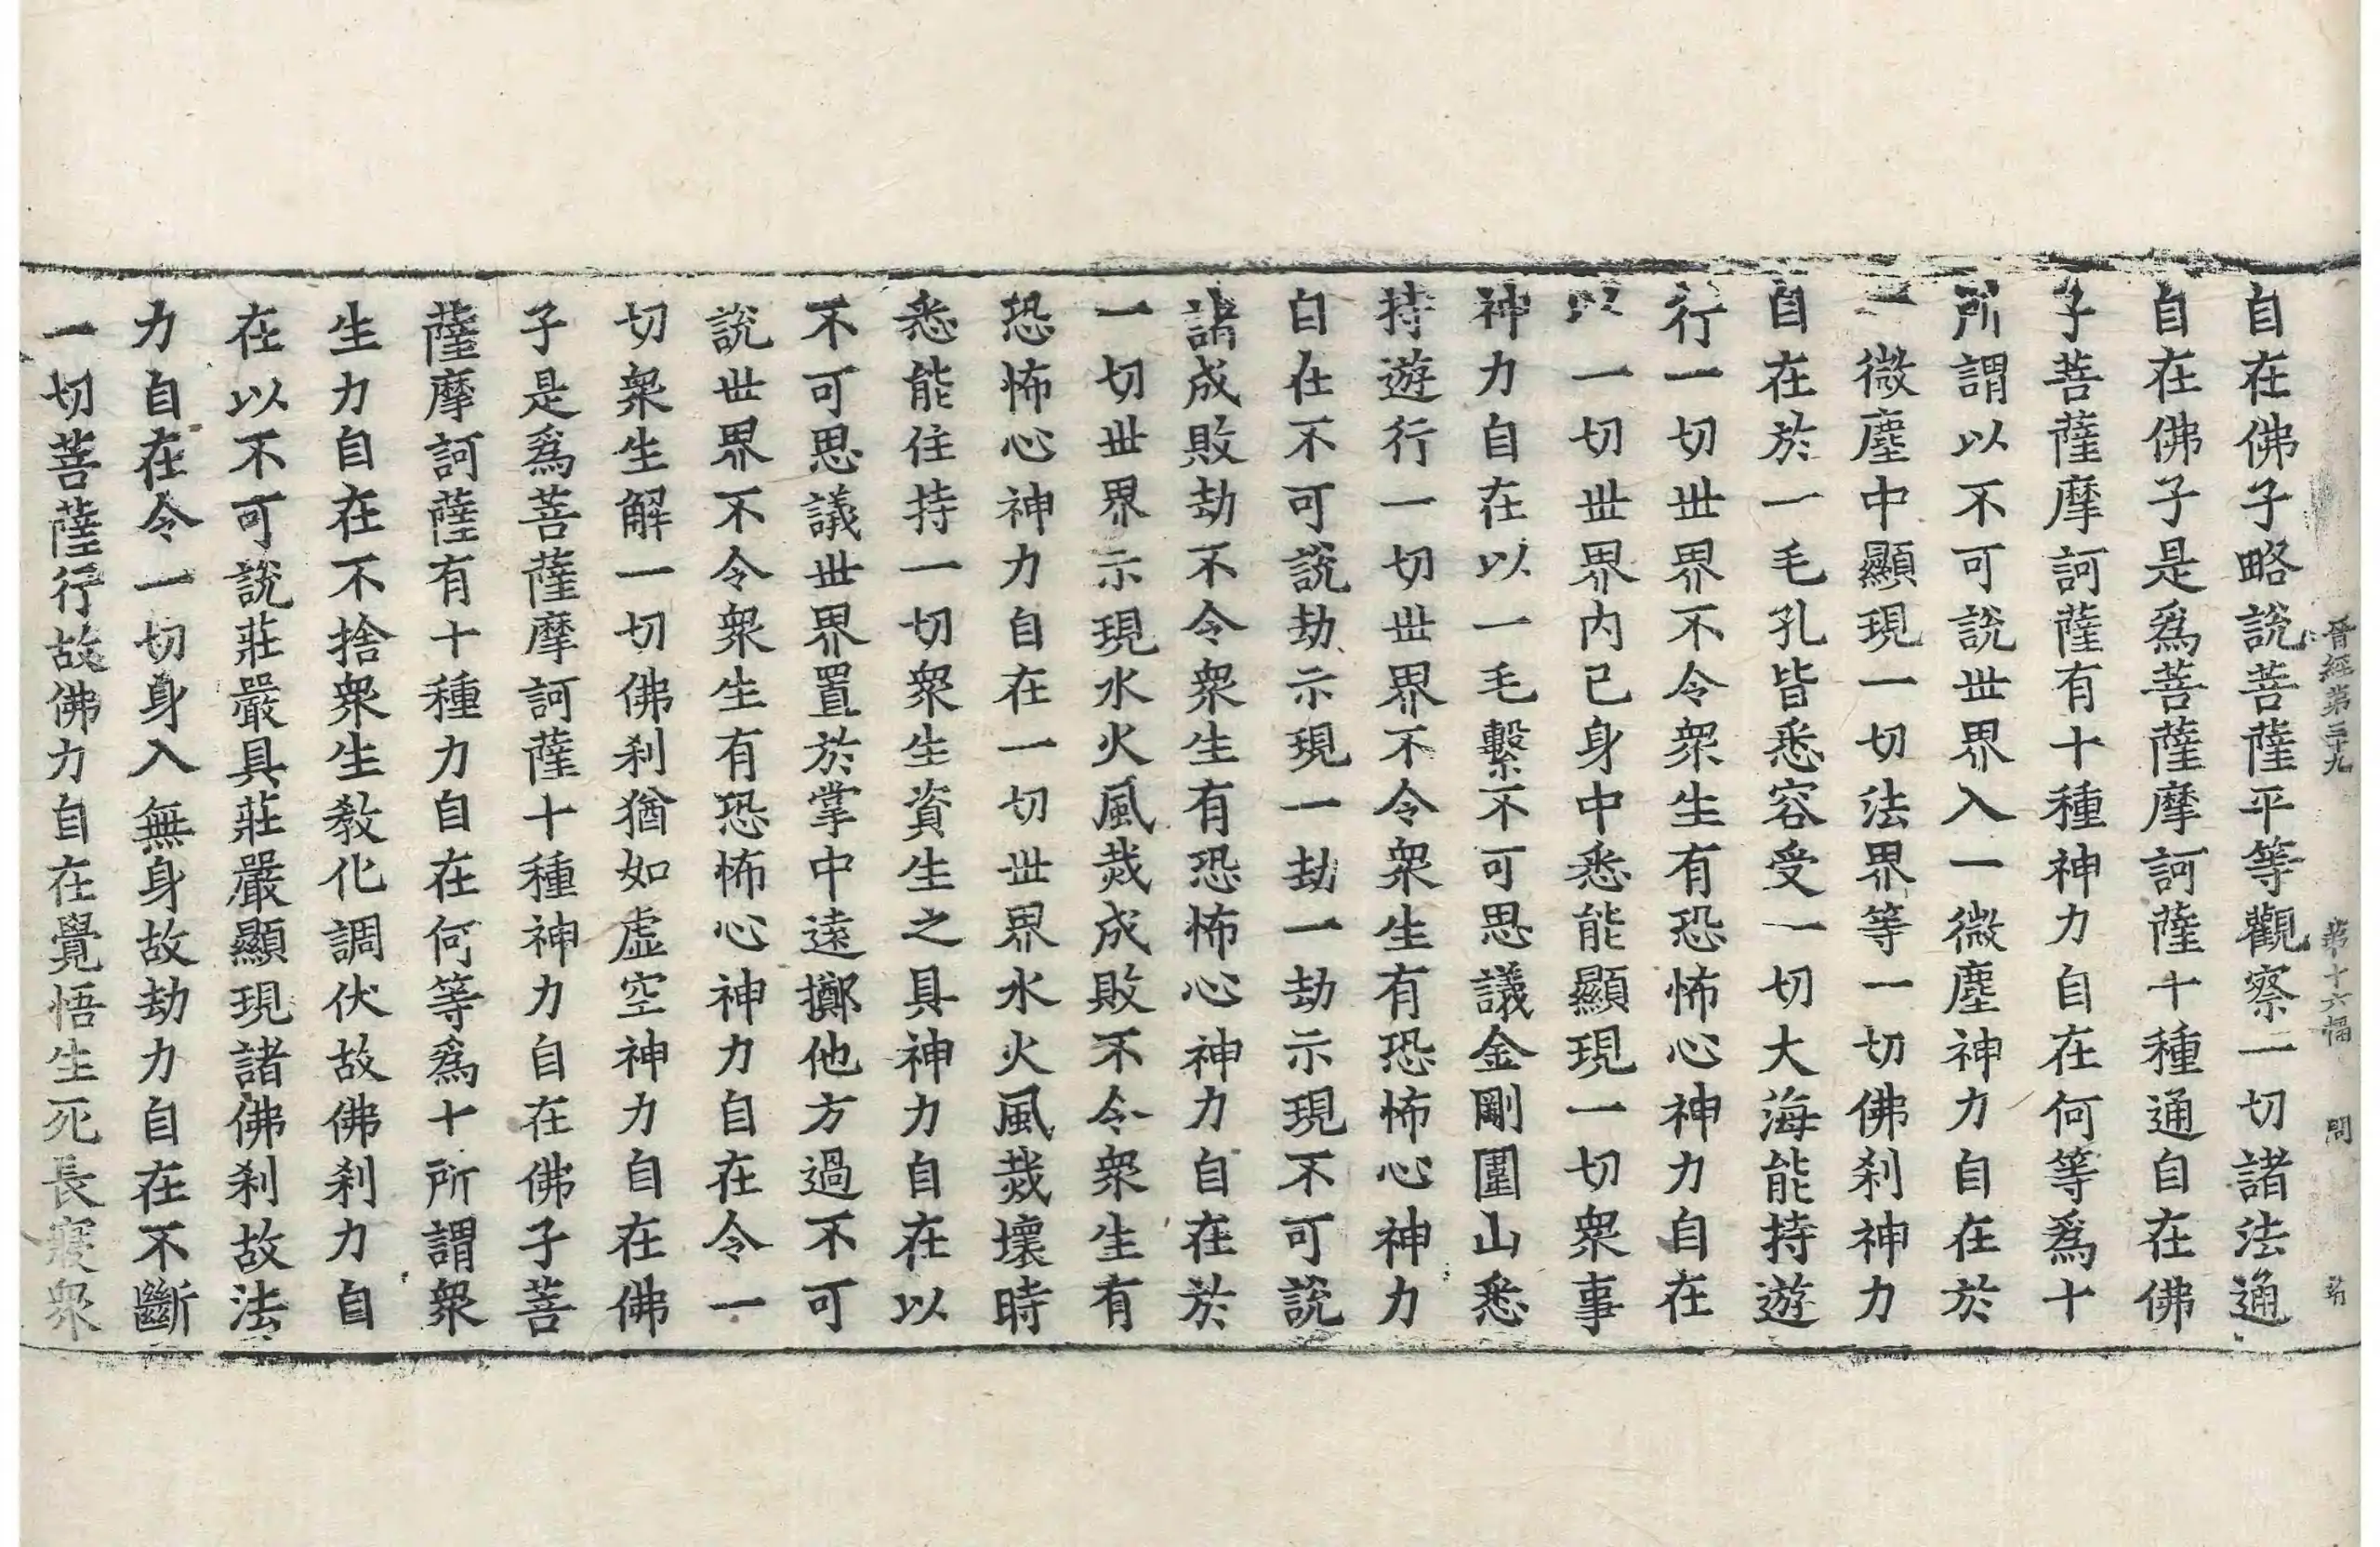 晉經第三十九 第十六幅 問
自在佛子略說菩薩平等觀察一切諸法通
自在佛子是爲菩薩摩訶薩十種通自在佛
子菩薩摩訶薩有十種神力自在何等爲十
所謂以不可說世界入一微塵神力自在於
一微塵中顯現一切法界等一切佛刹神力
自在於一毛孔皆悉容受一切大海能持遊
行一切世界不令衆生有恐怖心神力自在
以一切世界內己身中悉能顯現一切衆事
神力自在以一毛繫不可思議金剛圍山悉
持遊行一切世界不令衆生有恐怖心神力
自在不可說劫示現一劫一劫示現不可說
諸成敗劫不令衆生有恐怖心神力自在於
一切世界示現水火風烖成敗不令衆生有
恐怖心神力自在一切世界水火風烖壞時
悉能住持一切衆生資生之具神力自在以
不可思議世界置於掌中遠擲他方過不可
說世界不令衆生有恐怖心神力自在令一
切衆生解一切佛刹猶如虛空神力自在佛
子是爲菩薩摩訶薩十種神力自在佛子菩
薩摩訶薩有十種力自在何等爲十所謂衆
生力自在不捨衆生教化調伏故佛刹力自
在以不可說莊嚴具莊嚴顯現諸佛刹故法
力自在令一切身入無身故劫力自在不斷
一切菩薩行故佛力自在覺悟生死長寢衆